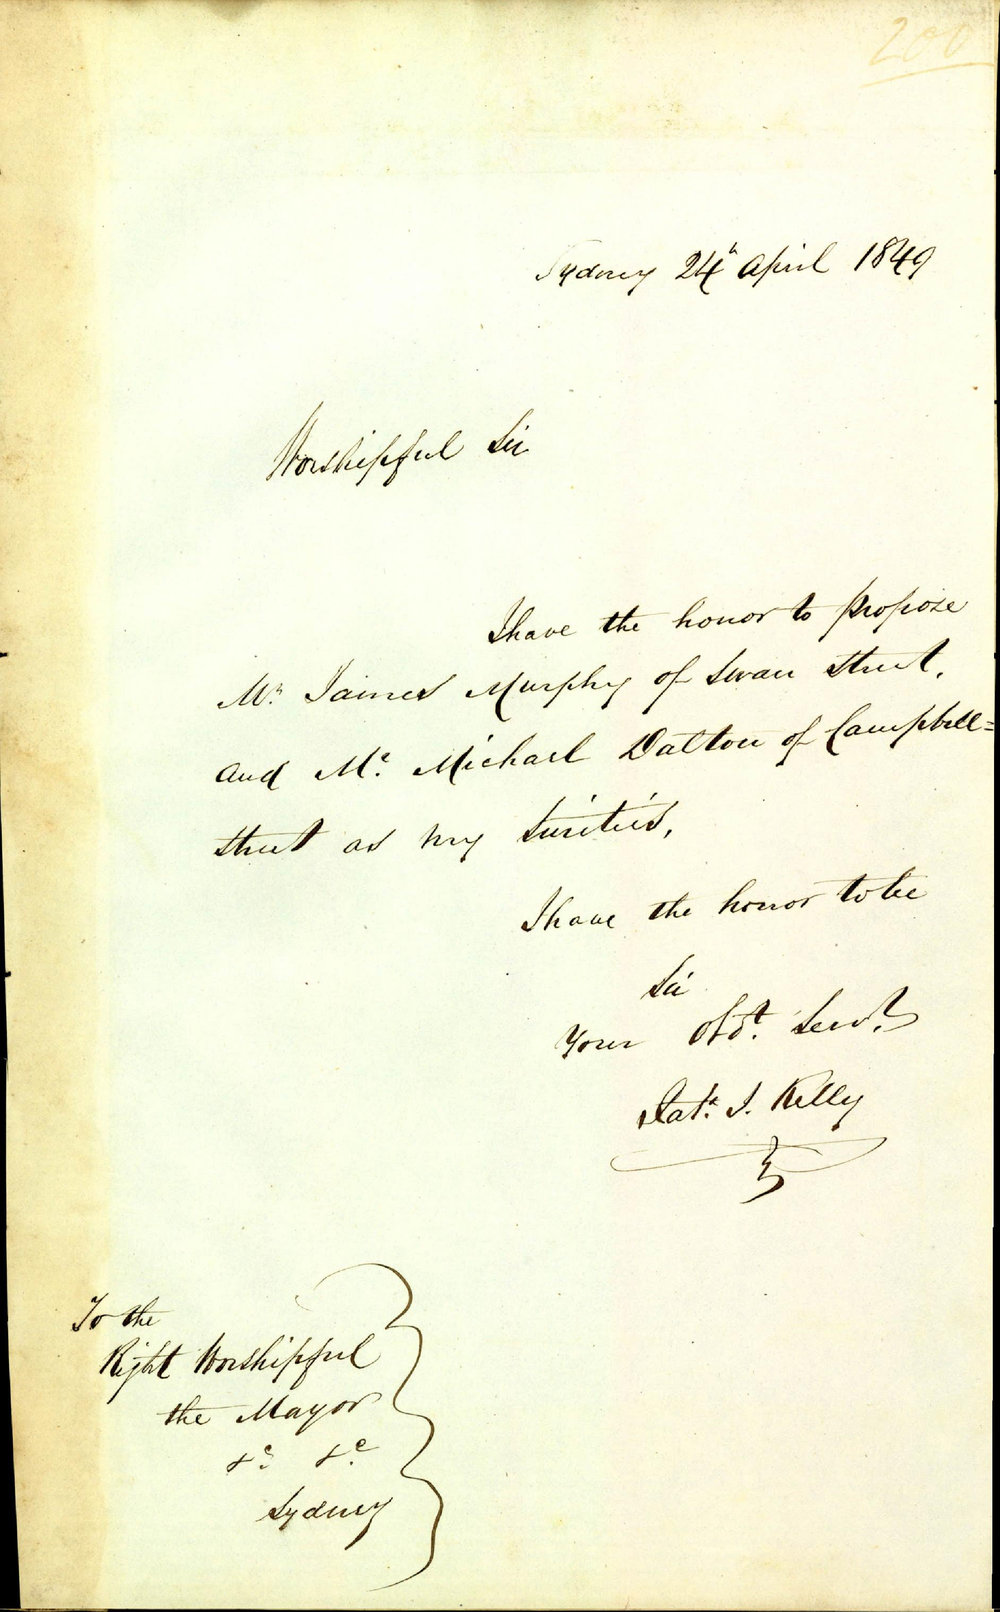 200
Sydney 24th April 1849
Worshipful Sir
I have the honor to propose
Mr. James Murphy of Swan Street,
and Mr. Michael Dalton of Campbell=
street as my Sureties,
I have the honor to be
Sir
Your Obdt. Servt.
Patk. J. Kelly
To the
Right Worshipful
the Mayor
&c. &c.
Sydney